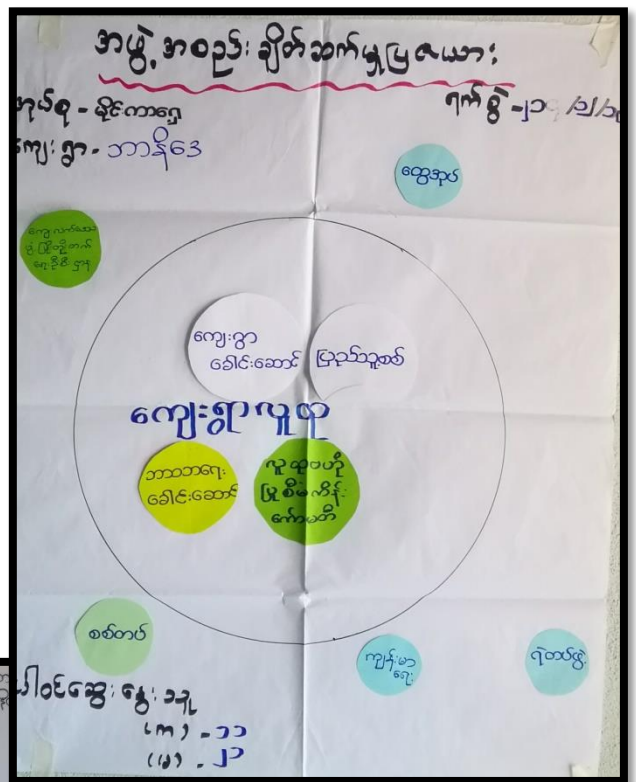 အဖွဲ့အစည်း ချိတ်ဆက်မှုပြဇယား
အုပ်စု - မိုင်းကာရှေ့
ရက်စွဲ -၂၁
ကျေးရွာ - ဘာနိဒေ
ထွေအုပ်
ကျေးလက်ဒေသ
ဖွံ့ဖြိုးတိုးတက်
ရေးဦးစီးဌာန
ကျေးရွာ
ခေါင်းဆောင်
ပြည်သူ့စစ်
ကျေးရွာလူထု
ဘာသာရေး
ခေါင်းဆောင်
လူထုဗဟို
ပြုစီမံကိန်း
ကော်မတီ
စစ်တပ်
ကျန်းမာ
ရေး
ရဲတပ်ဖွဲ့
ပါဝင်ဆွေးနွေးသူ
(ကျ) - ၁၁
(မ) - ၂၁